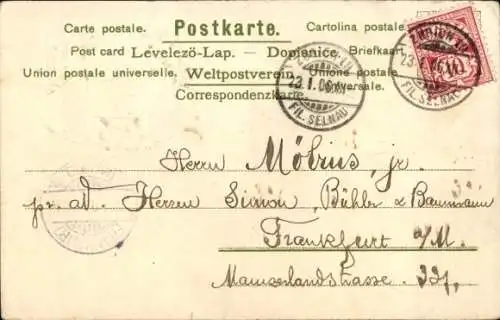 Carte postale. Postkarte. Cartolina postale.
Post card Levelező-Lap. — Dopisnice. Briefkaart
Union postale universelle. Weltpostverein. Unione postale universale.
Correspondenzkarte.
ZÜRICH
23.1.06
FIL. SELNAU
10
Herrn Möbius, jr.
pr. ad. Herren Simon, Bühler & Baumann
Frankfurt a/M.
Mainzerlandstrasse.